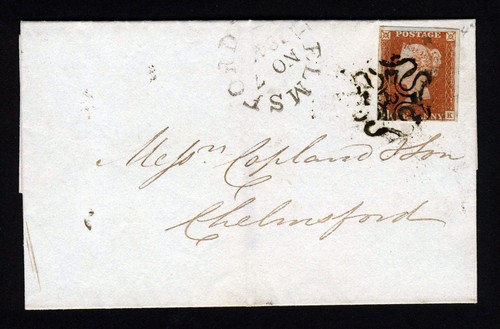 CHELMSFORD
NO
POSTAGE
ONE PENNY
K
Messrs Copland & Son
Chelmsford